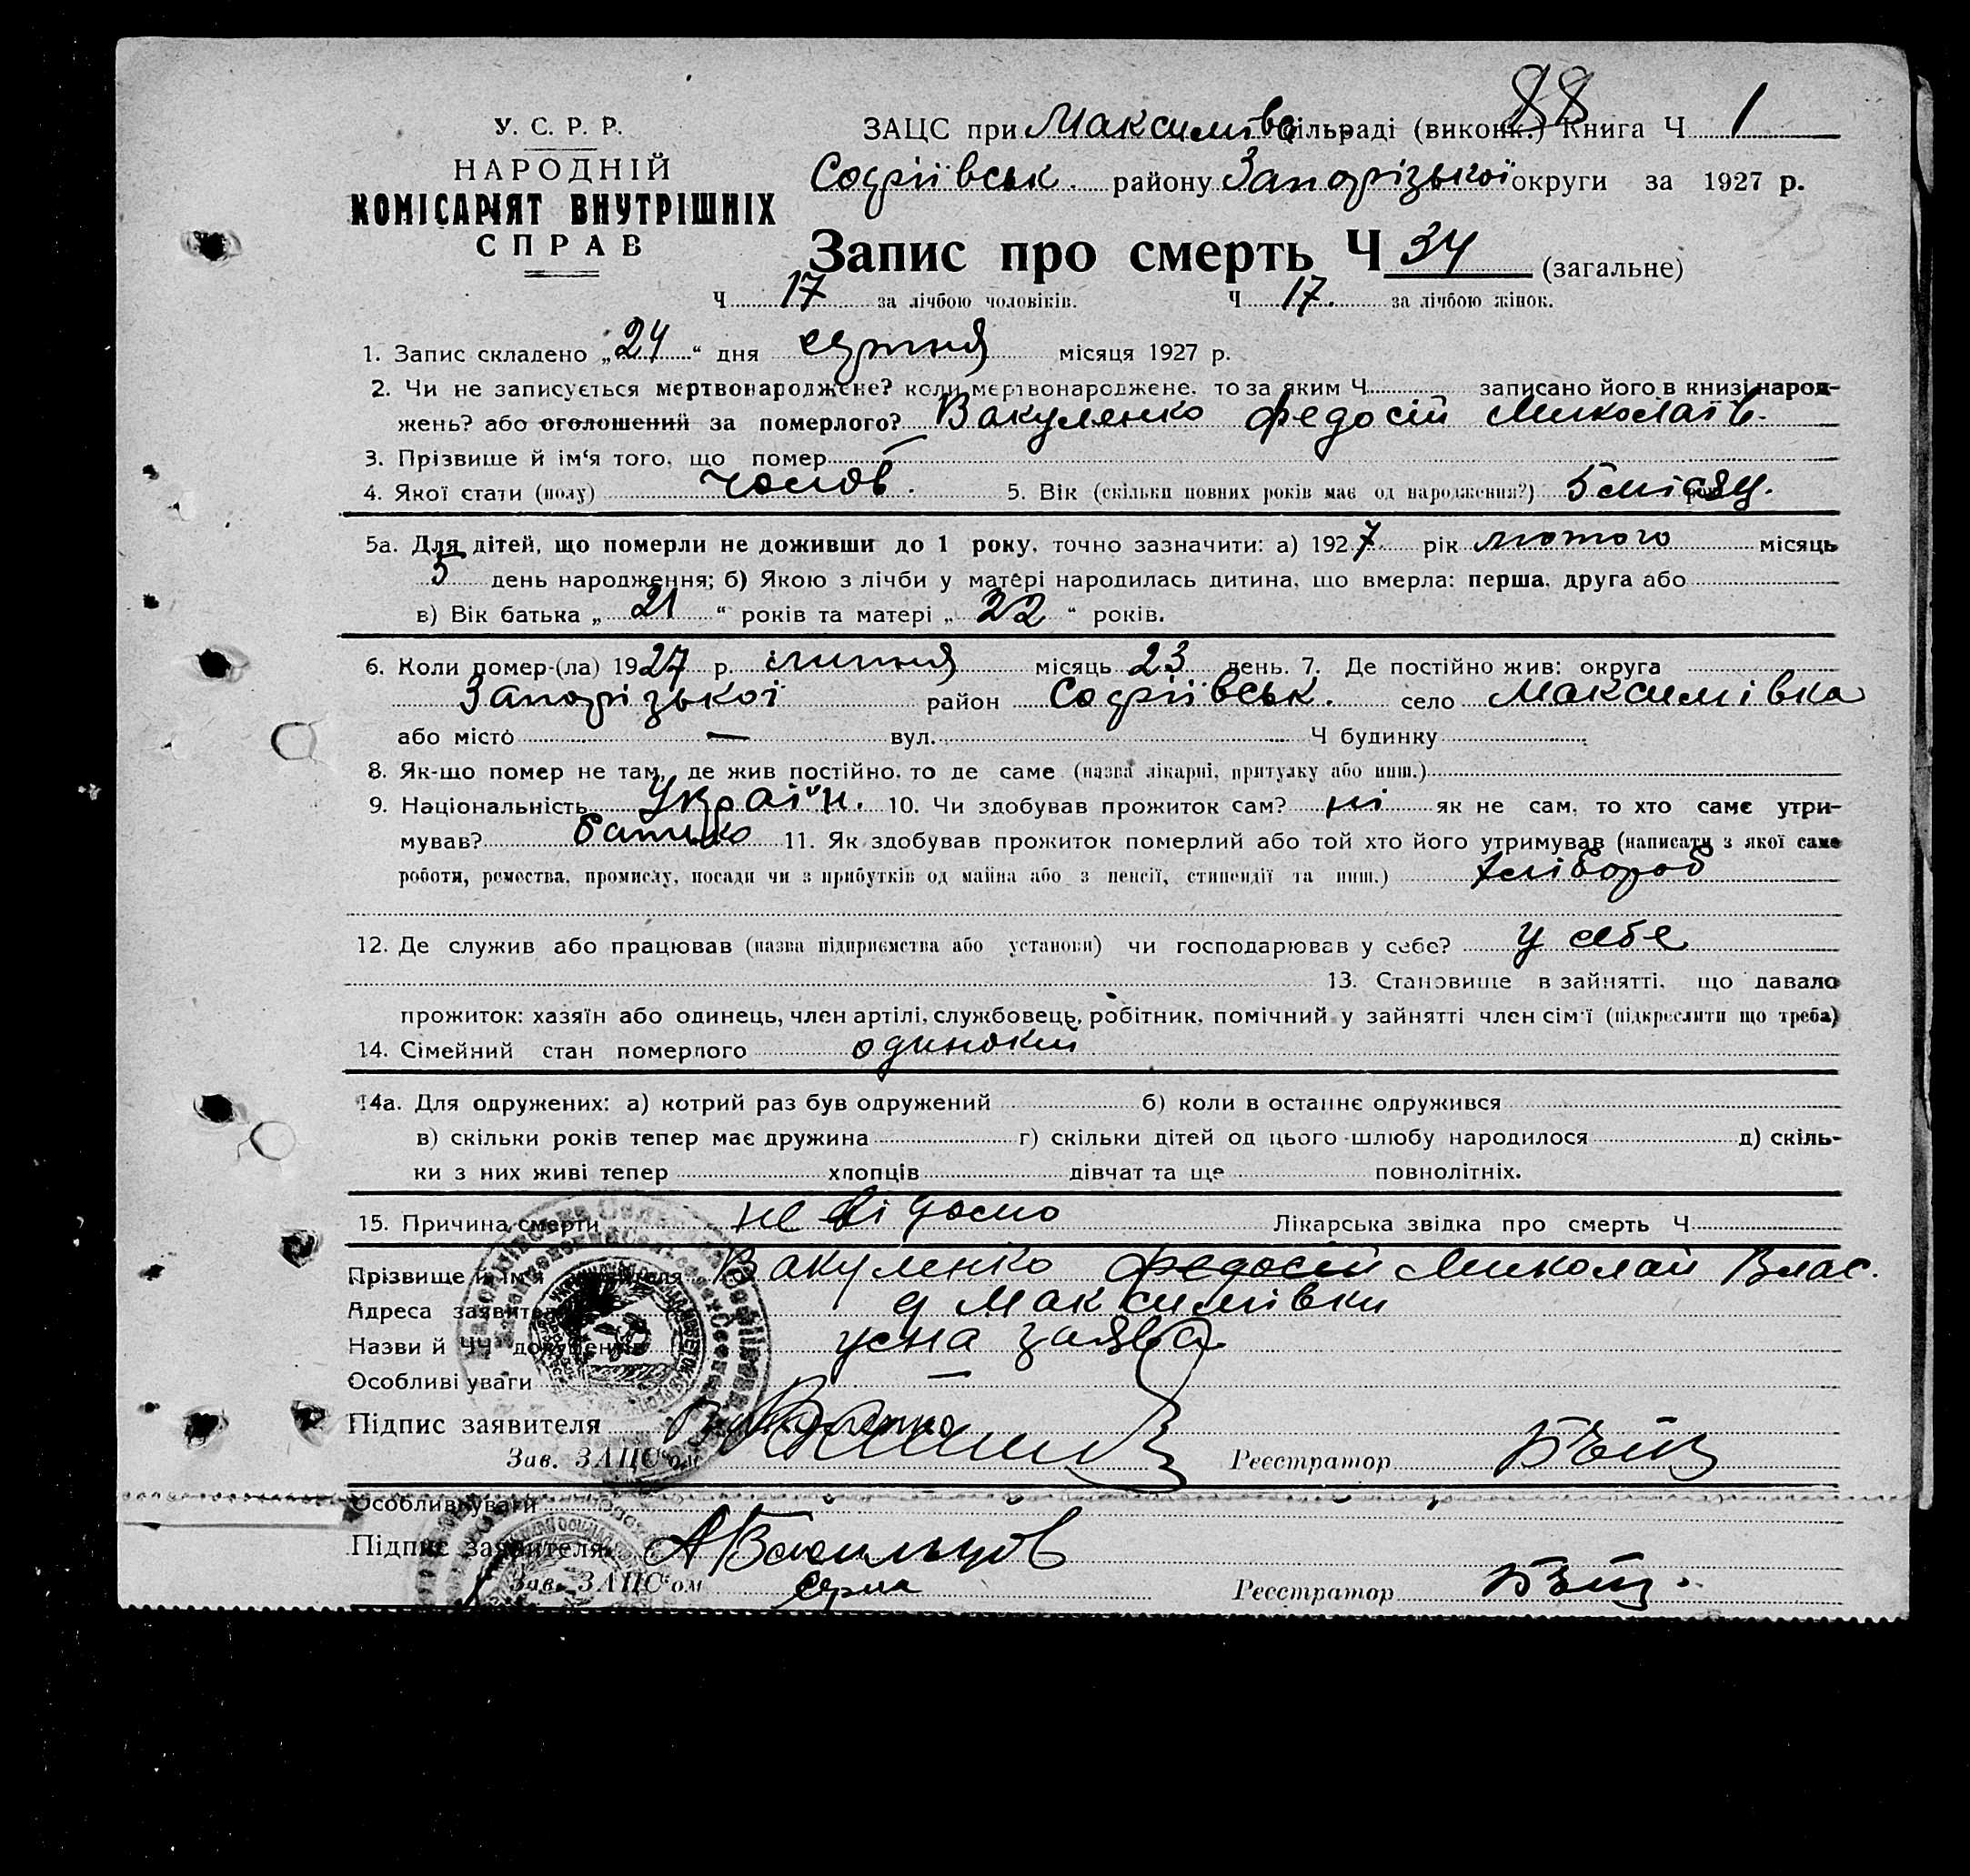 88
У. С. Р. Р.
НАРОДНІЙ
КОМІСАРІЯТ ВНУТРІШНІХ
СПРАВ
ЗАЦС при Максимівс сільраді (виконк.) Книга Ч 1
Софіївськ. району Запорізької округи за 1927 р.
Запис про смерть Ч 34 (загальне)
Ч 17 за лічбою чоловіків. Ч 17. за лічбою жінок.
1. Запис складено „24“ дня серпня місяця 1927 р.
2. Чи не записується мертвонароджене? коли мертвонароджене, то за яким Ч записано його в книзі народ-
жень? або оголошений за померлого? Вакуленко Федосій Миколаїв.
3. Прізвище й ім‘я того, що помер
4. Якої стати (полу) чолов. 5. Вік (скільки повних років має од народження?) 5 місяц.
5а. Для дітей, що померли не доживши до 1 року, точно зазначити: а) 1927 рік лютого місяць
5 день народження; б) Якою з лічби у матері народилась дитина, що вмерла: перша, друга або
в) Вік батька „21“ років та матері „22“ років.
6. Коли помер-(ла) 1927 р. липня місяць 23 день. 7. Де постійно жив: округа
Запорізької район Софіївськ. село Максимівка
або місто — вул. Ч будинку
8. Як-що помер не там, де жив постійно, то де саме (назва лікарні, притулку або инш.)
9. Національність Україн. 10. Чи здобував прожиток сам? ні як не сам, то хто саме утри-
мував? батько 11. Як здобував прожиток померлий або той хто його утримував (написати з якої саме
роботи, ремества, промислу, посади чи з прибутків од майна або з пенсії, стипендії та инш.) хлібороб
12. Де служив або працював (назва підприємства або установи) чи господарював у себе? у себе
13. Становище в зайнятті, що давало
прожиток: хазяїн або одинець, член артілі, службовець, робітник, помічний у зайнятті член сім'ї (підкреслити що треба)
14. Сімейний стан померлого одинокий
14а. Для одружених: а) котрий раз був одружений б) коли в останнє одружився
в) скільки років тепер має дружина г) скільки дітей од цього шлюбу народилося д) скіль-
ки з них живі тепер хлопців дівчат та ще повнолітніх.
15. Причина смерти не відомо Лікарська звідка про смерть Ч
Прізвище й ім'я заявителя Вакуленко Федосій Миколай Влас.
Адреса заявителя Максимівки
Назви й ЧЧ документів усна заява
Особливі уваги —
Підпис заявителя Вакуленко
Зав. ЗАЦС‘ом Реєстратор
Особливі уваги
Підпис заявителя
Зав. ЗАЦС‘ом Реєстратор